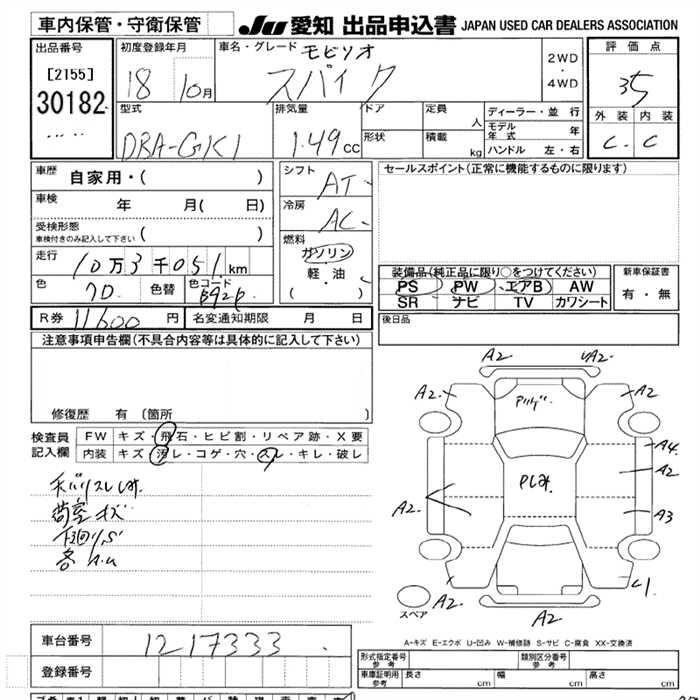 車内保管・守衛保管
JU 愛知 出品申込書 JAPAN USED CAR DEALERS ASSOCIATION
出品番号
[2155]
30182
初度登録年月
18 10月
車名・グレード モビリオ
スパイク
2WD
・
4WD
評価点
3.5
外装 内装
C. C
型式
DBA-GK1
排気量
1.49 cc
ドア
形状
定員 人
積載 kg
ディーラー・並行
モデル年式 年
ハンドル 左・右
車歴 自家用・( )
車検 年 月( 日)
受検形態
車検付きのみ記入して下さい ( )
走行 10万3千051km
色 色替 色コード
B92P
シフト AT
冷房 AC
燃料
ガソリン
軽・油
( )
セールスポイント(正常に機能するものに限ります)
装備品(純正品に限り○をつけてください)
PS PW エアB AW
SR ナビ TV カワシート
新車保証書
有・無
R券 11600 円 名変通知期限 月 日
後日品
注意事項申告欄(不具合内容等は具体的に記入して下さい)
修復歴 有 〔箇所 〕
検査員
記入欄
FW キズ・飛石・ヒビ割・リペア跡・X要
内装 キズ・汚レ・コゲ・穴・スレ・キレ・破レ
荷室キズ
下回りS
各A.U
A2 A2
A2 A2
A4
A2
A2
A3
A2
A2
スペア
A-キズ E-エクボ U-凹み W-補修跡 S-サビ C-腐食 XX-交換済
車台番号 1217333
登録番号
形式指定番号
参考
類別区分番号
参考
車庫証明用
参考
長さ cm 幅 cm 高さ cm